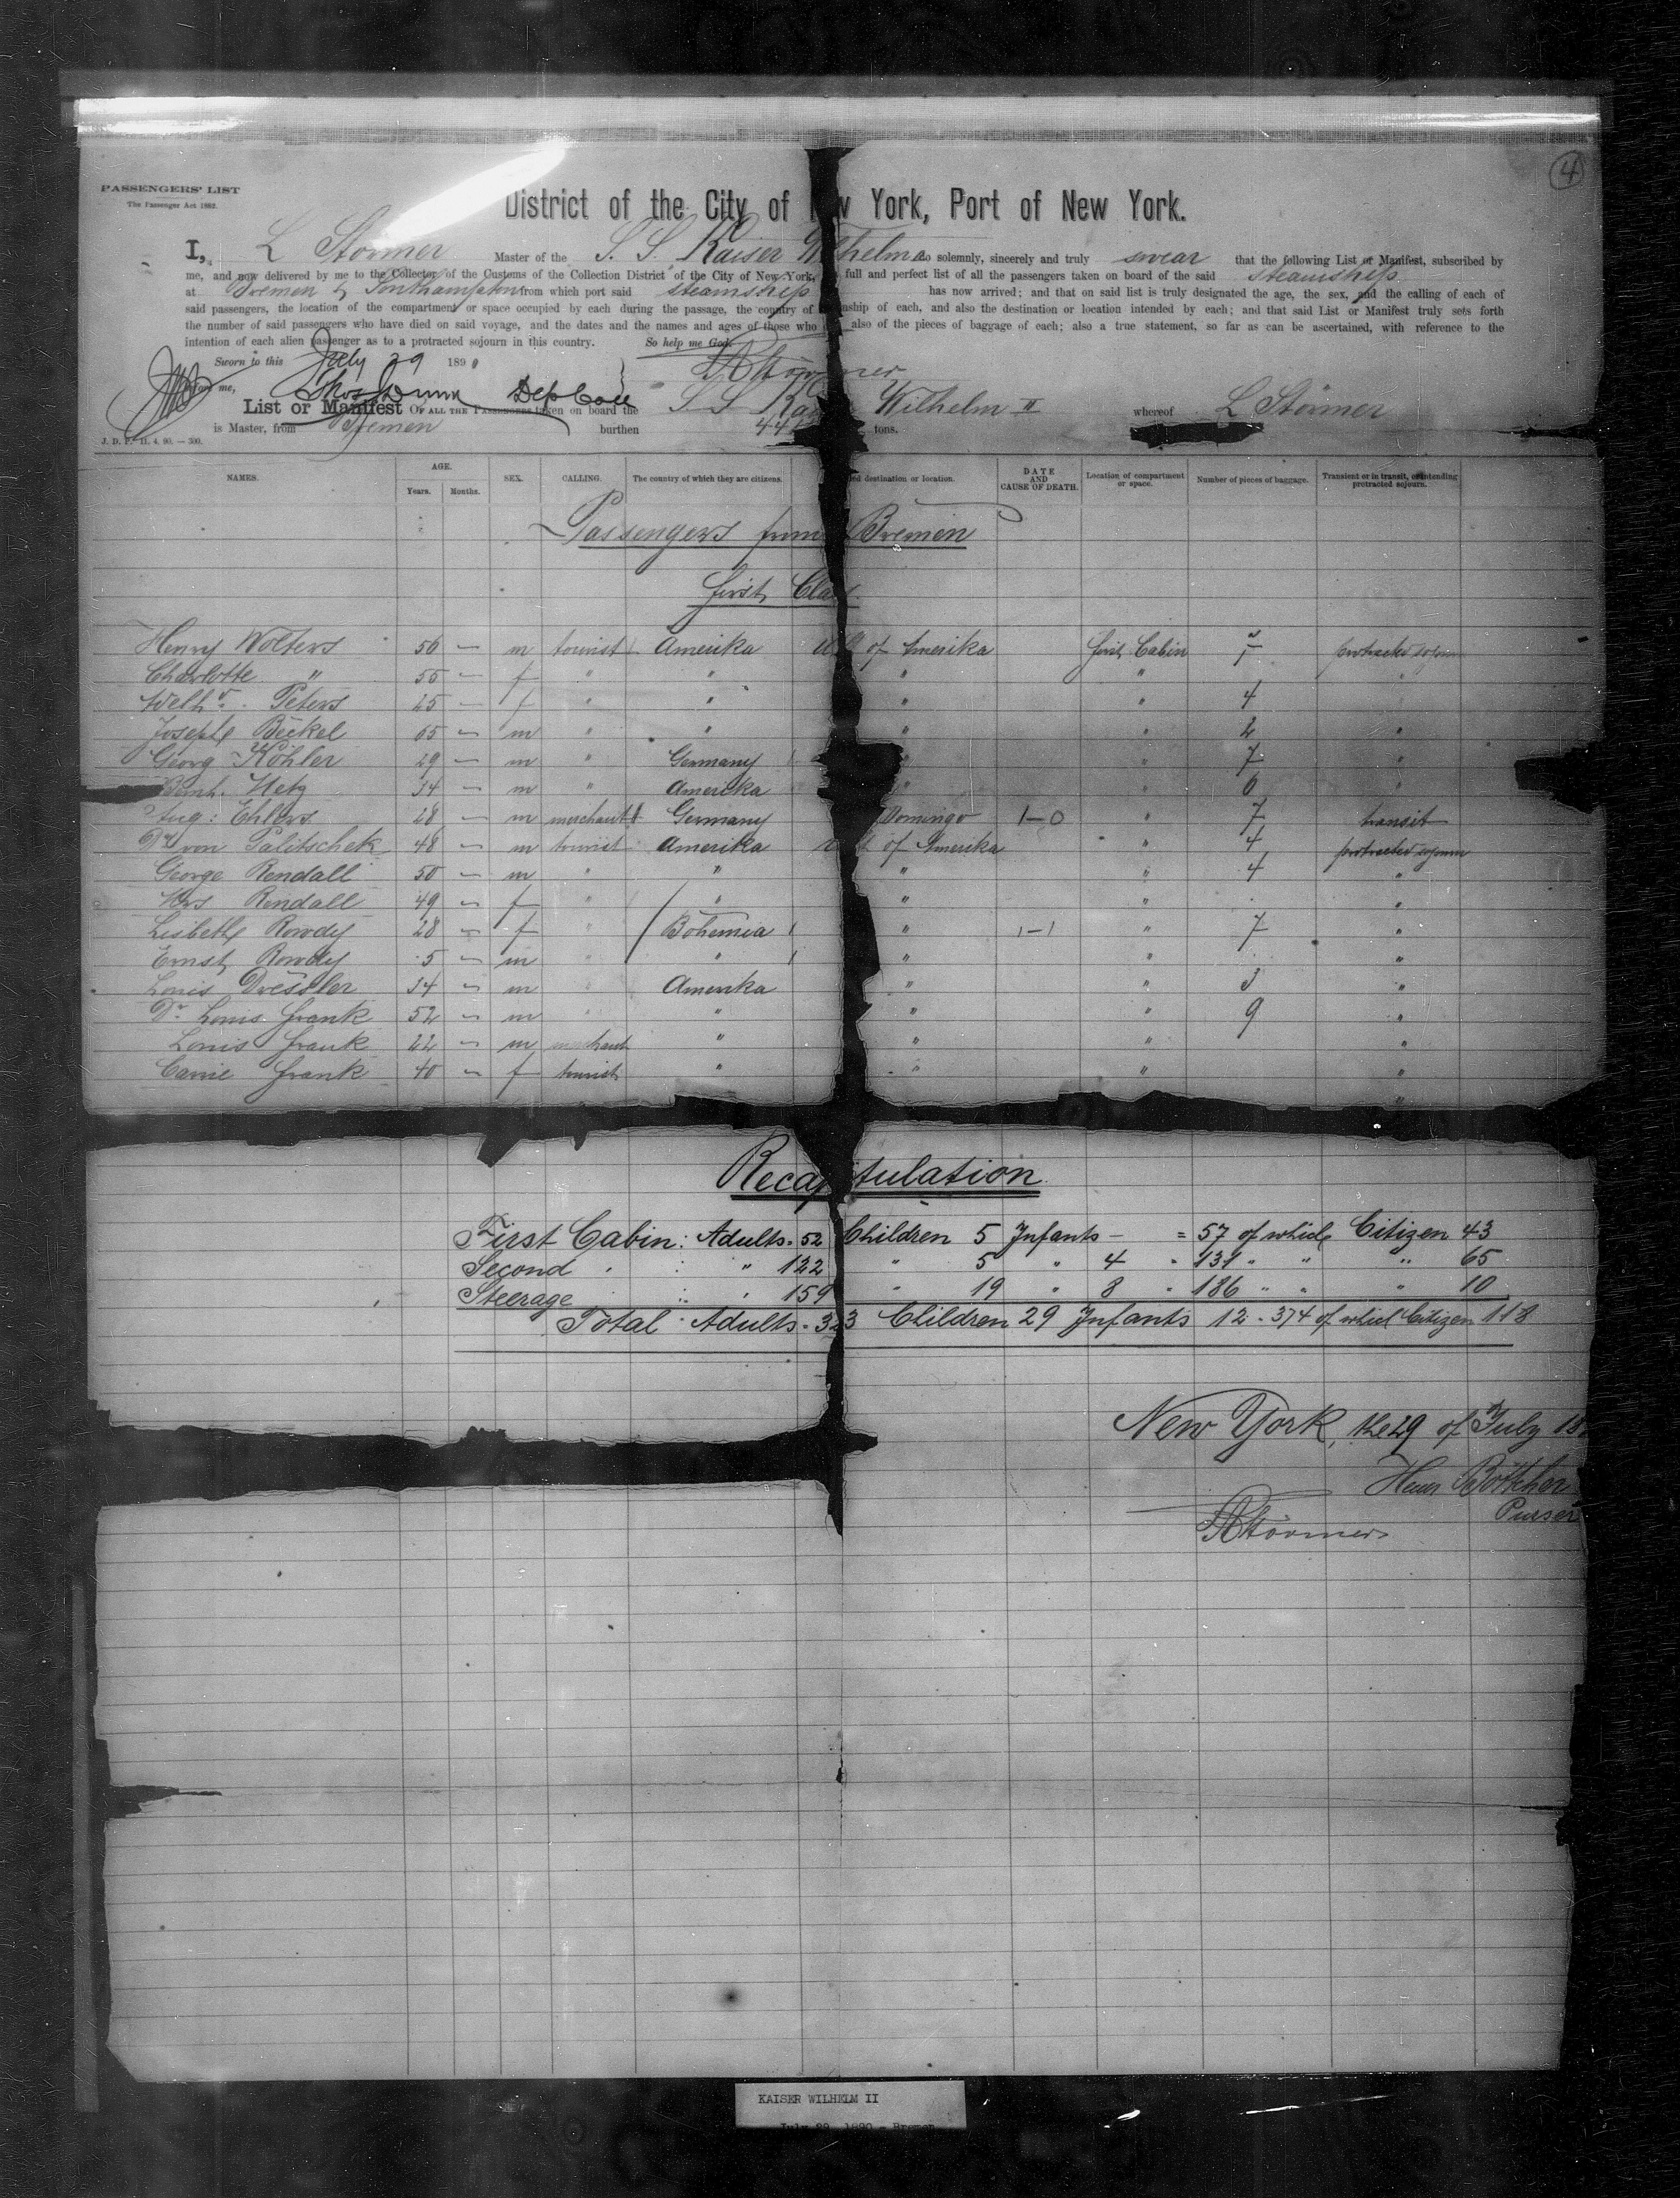 4
PASSENGERS' LIST
The Passenger Act 1882.
District of the City of New York, Port of New York.
I, L Störmer Master of the S. S. Kaiser Wilhelm do solemnly, sincerely and truly swear that the following List or Manifest, subscribed by
me, and now delivered by me to the Collector of the Customs of the Collection District of the City of New York, full and perfect list of all the passengers taken on board of the said steamship
at Bremen & Southampton from which port said steamship has now arrived; and that on said list is truly designated the age, the sex, and the calling of each of
said passengers, the location of the compartment or space occupied by each during the passage, the country of nship of each, and also the destination or location intended by each; and that said List or Manifest truly sets forth
the number of said passengers who have died on said voyage, and the dates and the names and ages of those who also of the pieces of baggage of each; also a true statement, so far as can be ascertained, with reference to the
intention of each alien passenger as to a protracted sojourn in this country. So help me God.
Sworn to this July 29 1890 LStörmer
me, Thos Dunn Dep Coll
List or Manifest OF ALL THE PASSENGERS taken on board the S S Kaiser Wilhelm II whereof L Störmer
is Master, from Bremen burthen tons.
J. D. P. 11. 4. 90. — 300.
NAMES. AGE. Years. Months. SEX. CALLING. The country of which they are citizens. ed destination or location. DATE AND CAUSE OF DEATH. Location of compartment or space. Number of pieces of baggage. Transient or in transit, or intending protracted sojourn.
Passengers from Bremen
First Class
Henry Wolters 56 — m tourist Amerika of Amerika first Cabin protracted sojourn
Charlotte " 55 — f " " " "
Peters 25 — f " " " " 4
Joseph Böckel 65 — m " " " " 2 "
Georg Köhler 29 — m " Germany " " 7 "
Hetz 34 — m " Amerika " " 6 "
Aug: Ehlers 28 — m merchant Germany Domingo 1–0 " 7 transit
Dr von Palitschek 48 — m tourist Amerika of Amerika " 4 protracted sojourn
George Rendall 50 — m " " " " 4 "
Mrs Rendall 49 — f " " " " "
Lisbeth Rowdy 28 — f " Bohemia " 1–1 " 7 "
Ernst Rowdy 5 — m " " " "
Louis Dressler 34 — m " Amerika " " 3 "
Dr Louis Frank 52 — m " " " " 9 "
Louis Frank 22 — m merchant " " " "
Carrie Frank 40 — f tourist " " " "
"
Recapitulation
First Cabin: Adults. 52 Children 5 Infants — = 57 of which Citizen 43
Second " : " 122 " 5 " 4 " 131 " " " 65
Steerage : " 159 " 19 " 8 " 186 " " " 10
Total Adults. 333 Children 29 Infants 12 - 374 of which Citizen 118
New York, the 29 of July 18
Böttcher
Purser
LStörmer
KAISER WILHELM II
July 29, 1890 - Bremen